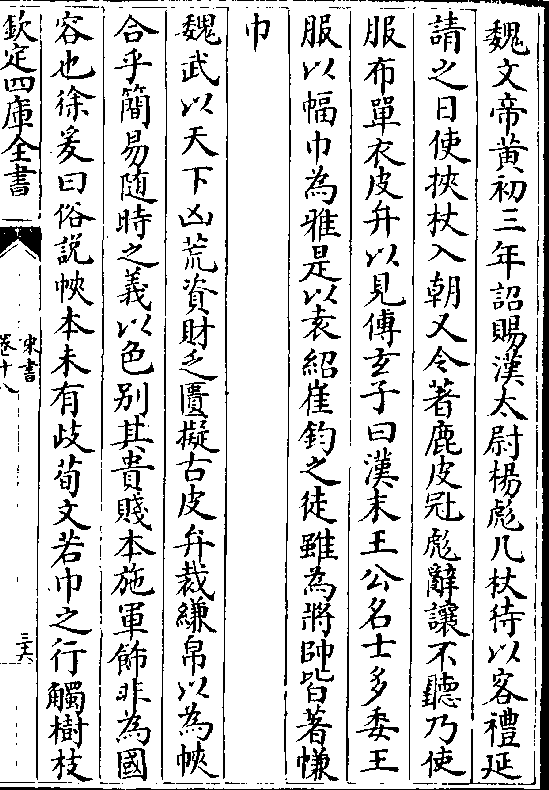 魏文帝黄初三年詔賜漢太尉楊彪几杖待以客禮延
請之日使挾杖入朝又令著鹿皮冠彪辭讓不聽乃使
服布單衣皮弁以見傅玄子曰漢末王公名士多委王
服以幅巾為雅是以袁紹崔鈞之徒雖為將帥皆著㡘
巾
魏武以天下凶荒資財乏匱擬古皮弁裁縑帛以為㡊
合乎簡易隨時之義以色別其貴賤本施軍飾非為國
容也徐爰曰俗說㡊本未有歧荀文若巾之行觸樹枝
欽定四庫全書
宋書
卷十八
三六